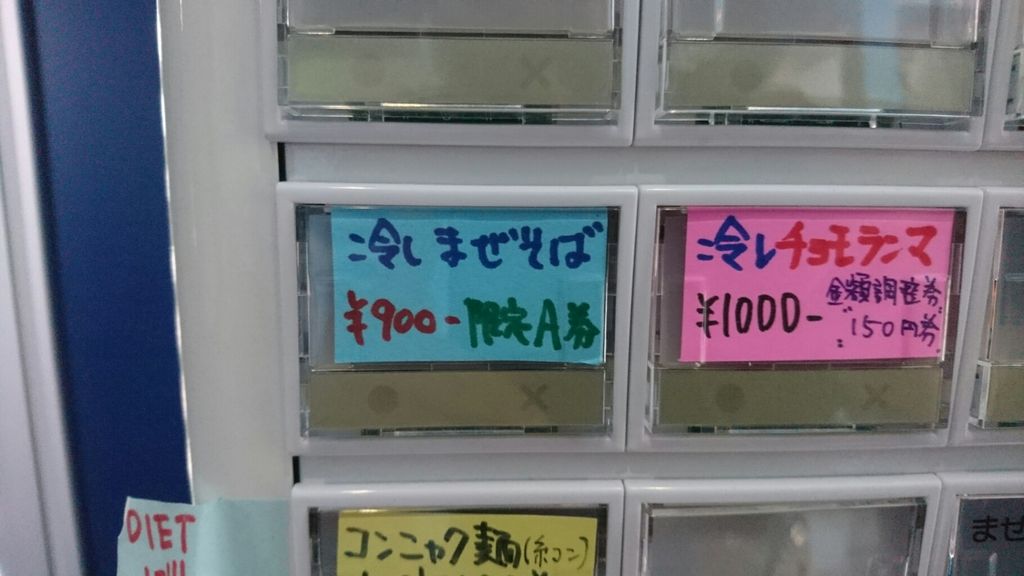 冷しまぜそば
¥900- 限定A券
冷しチョモランマ
¥1000- 金額調整券
"150円券"
コンニャク麺(糸コン)
DIET
まぜ